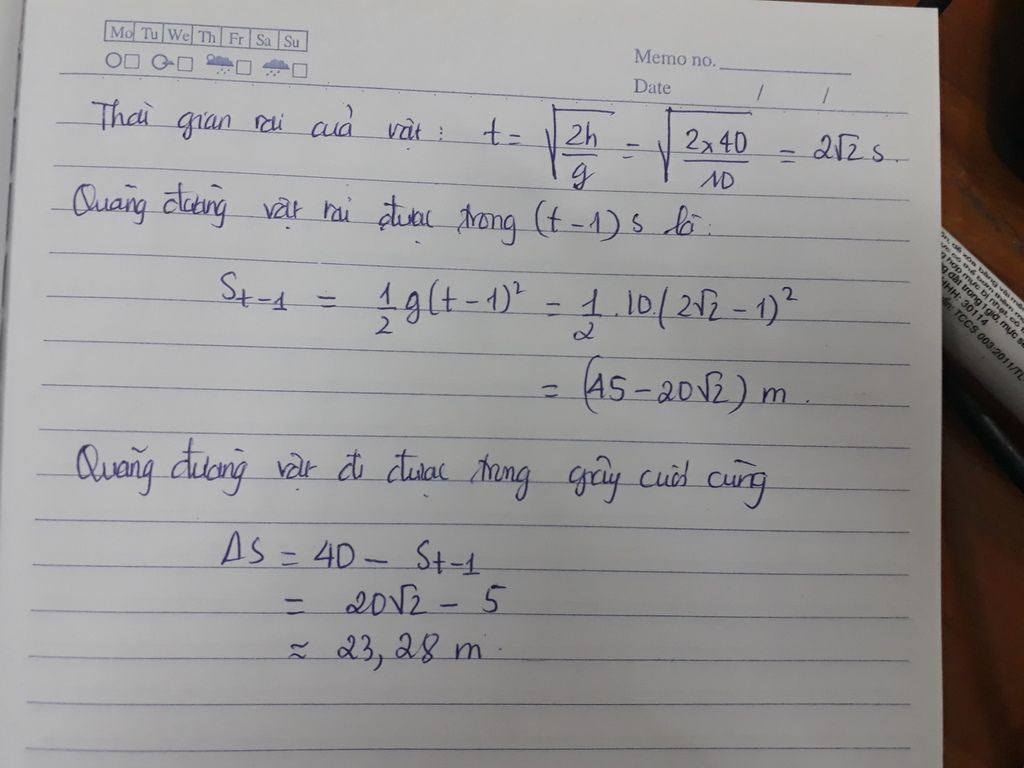 Mo Tu We Th Fr Sa Su
Memo no.
Date / /
Thời gian rơi của vật : t = √(2h/g) = √(2×40/10) = 2√2 s.
Quãng đường vật rơi được trong (t-1) s là:
S_{t-1} = 1/2 g(t-1)² = 1/2 .10.(2√2 - 1)²
= (45 - 20√2) m.
Quãng đường vật đi được trong giây cuối cùng
ΔS = 40 - S_{t-1}
= 20√2 - 5
≈ 23,28 m.
HHH: 30114
TCCS 003:2011/TL